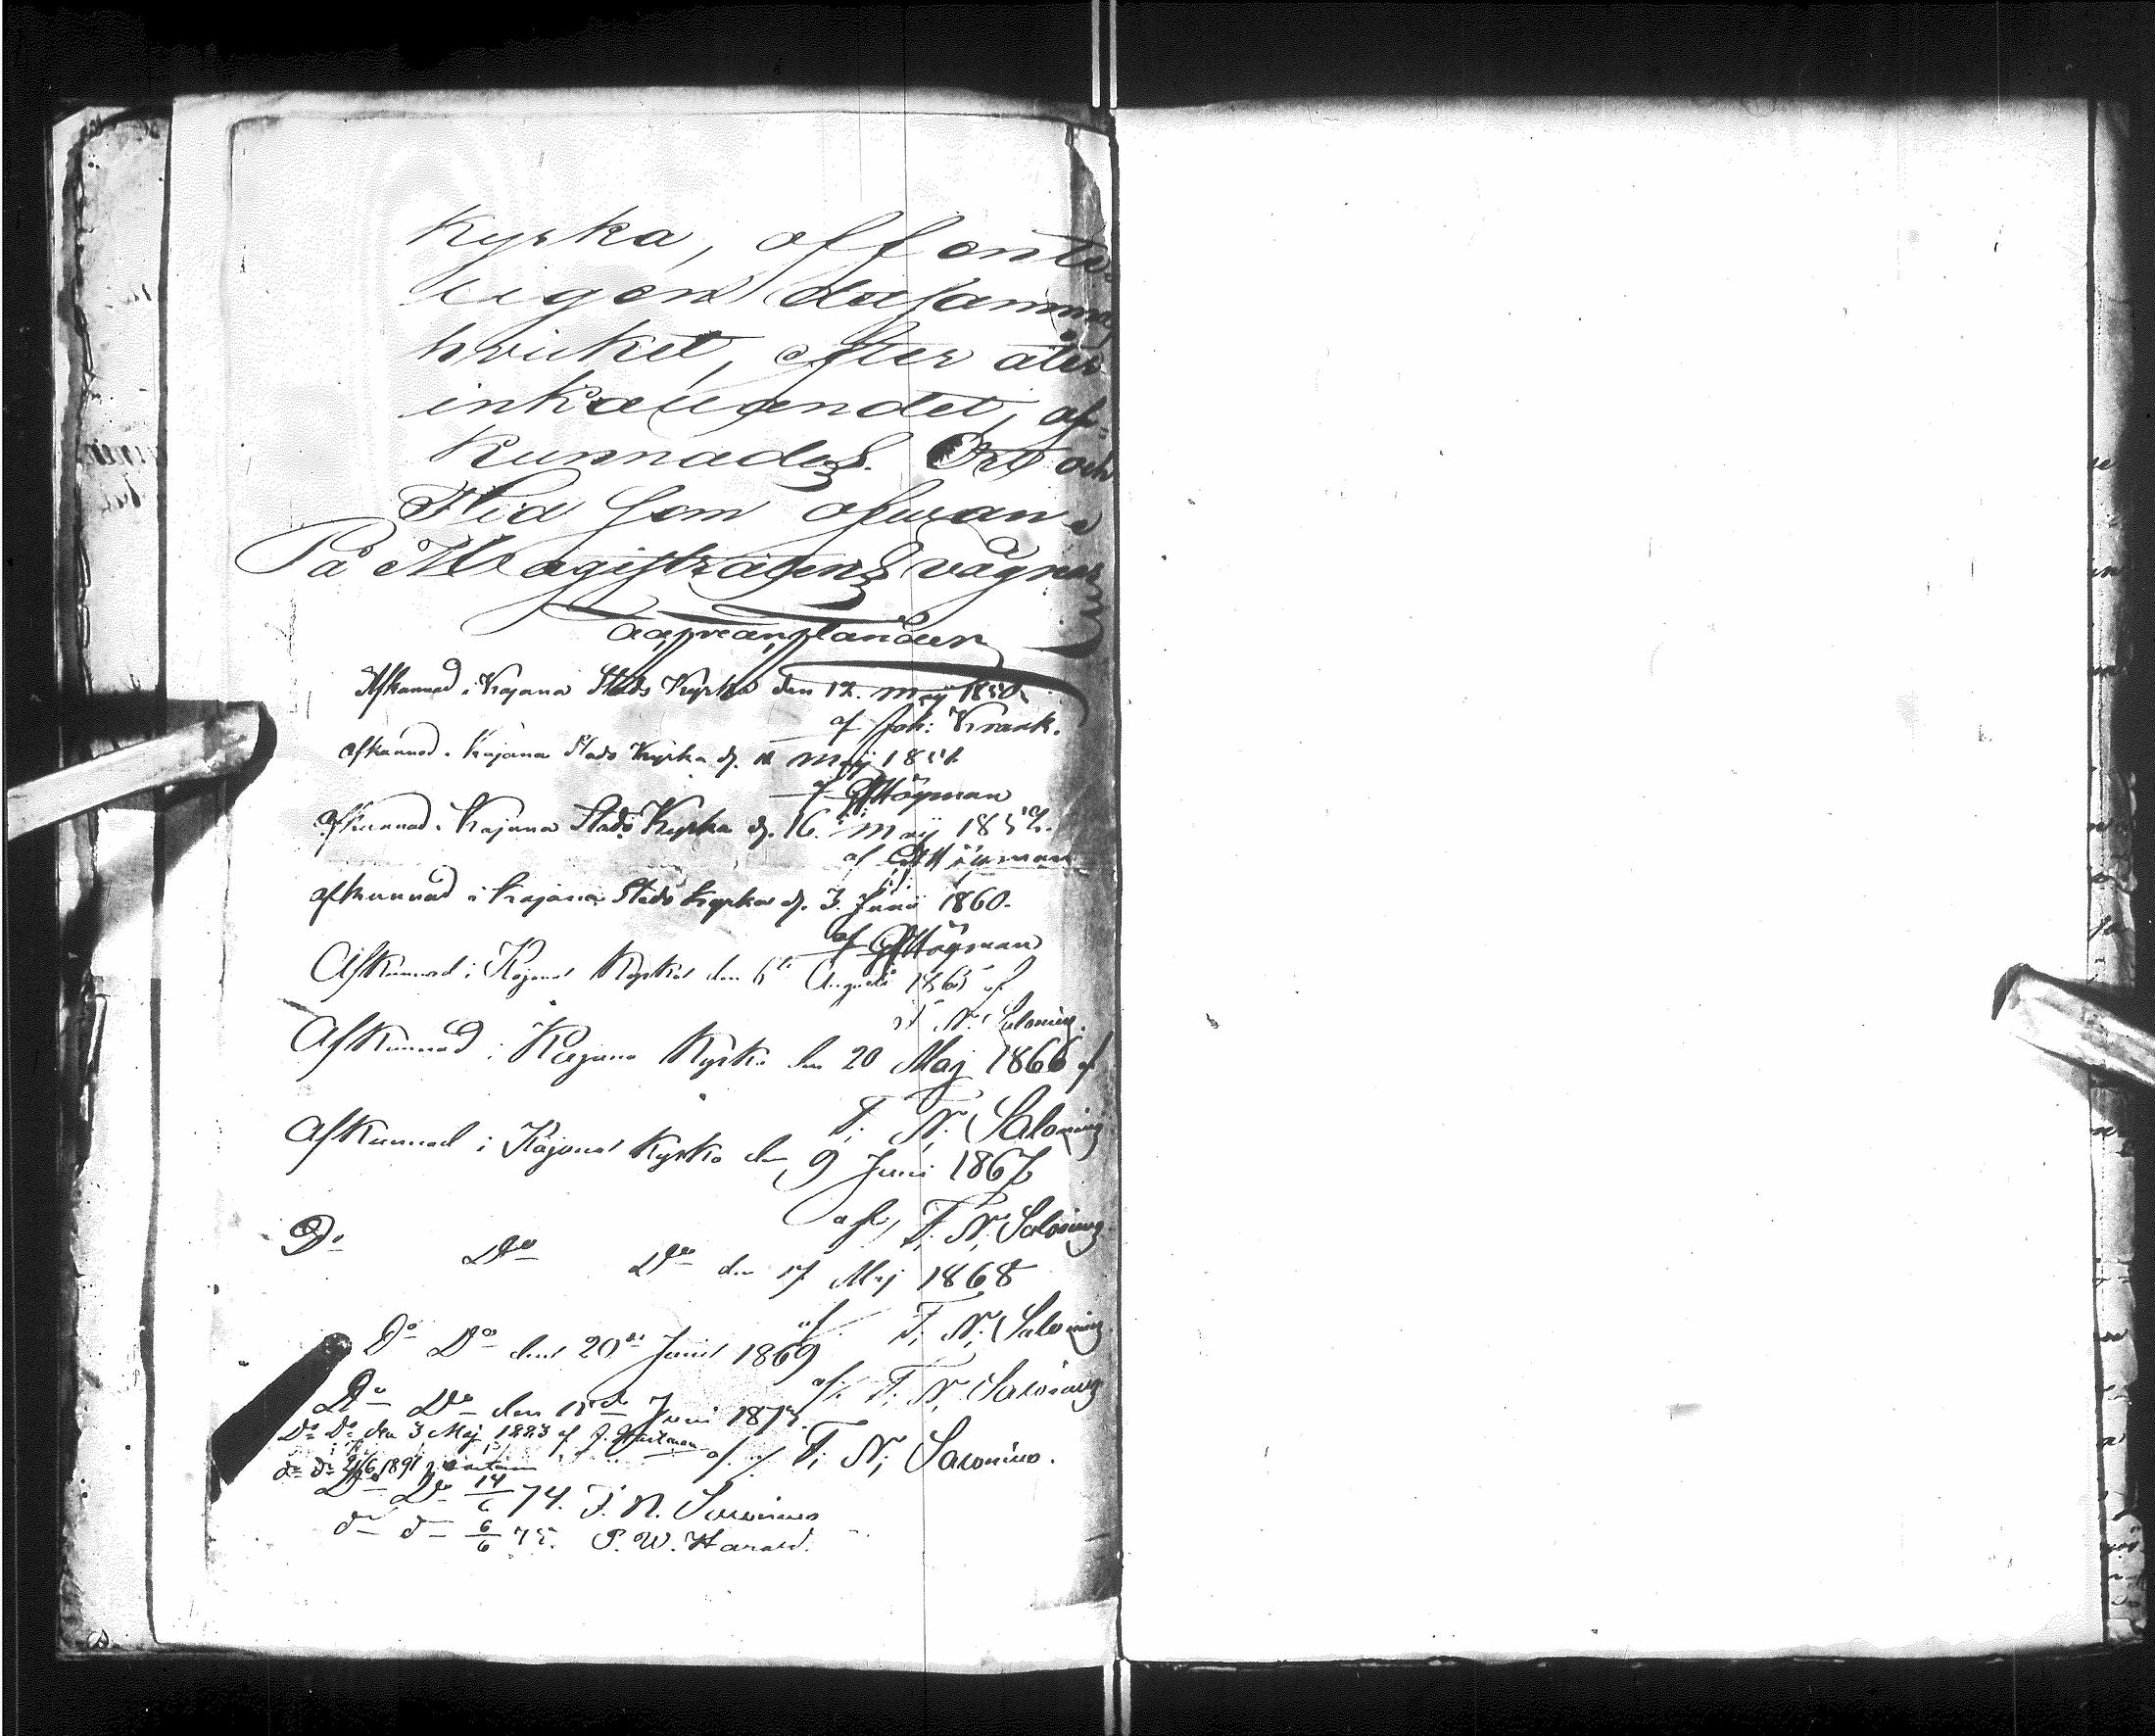 Kyrka, offente
ligen dersamma
hvilket, efter åter
inkallandet, af=
kunnades. Ort och
tid som ofwan
På Magistratens vägnar
Afkunnad i Kajana Stads Kyrka den 12. Maij 1850.
af Joh:
afkunnad i Kajana Stads Kyrka d. 11 Maij 1851.
af Högman
afkunnad i Kajana Stads Kyrka d. 16. Maij 1852.
af Högman
afkunnad i Kajana Stads Kyrka d. 3. Junii 1860.
af Högman
Afkunnad i Kajana Kyrka den 6te Augusti 1865 af
F. N. Salonius.
Afkunnad i Kajana Kyrka den 20 Maj 1866 af
F. N. Salonius
Afkunnad i Kajana Kyrka den 9 Juni 1867
af F. N. Salonius
Do Do Do den 17 Maj 1868
af F. N. Salonius
Do Do den 20de Juni 1869
af F. N. Salonius
Do Do den 15de Juni 1873.
af F. N. Salonius.
Do Do den 3 Maj 1883 af J.
do do 1891
Do Do 14/6 74. F. N. Salonius
do do 6/6 75. P. W.